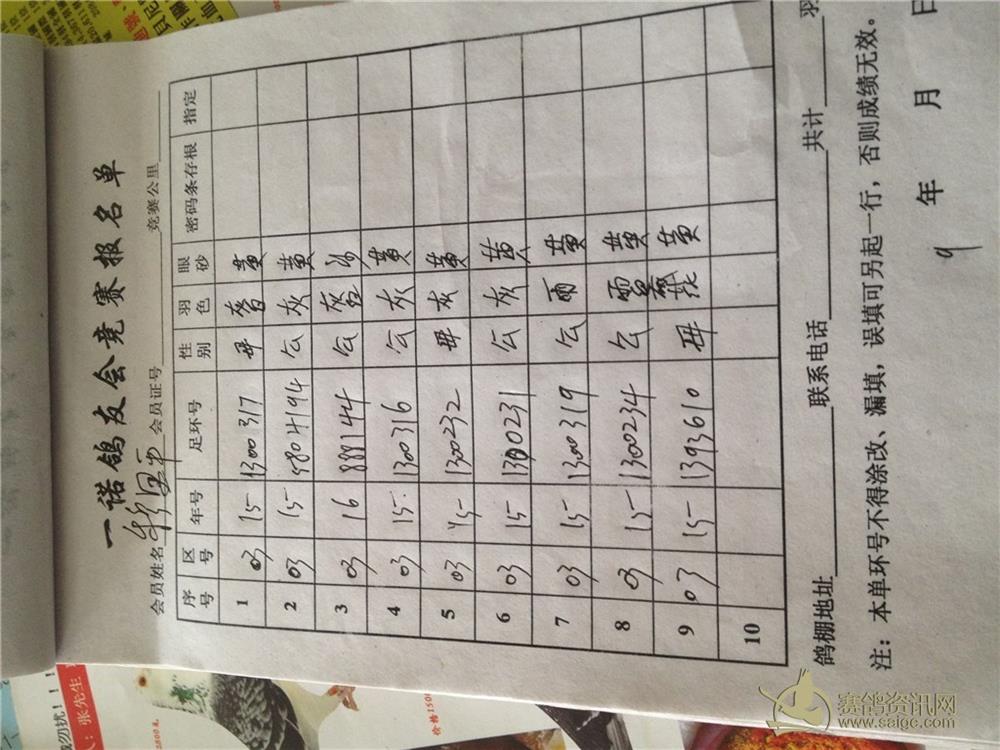 一诺鸽友会竞赛报名单
会员姓名 会员证号 竞赛公里
序号 区号 年号 足环号 性别 羽色 眼砂 密码条存根 指定
1 03 15 1300317 母 黄
2 03 15 8804194 公 灰 黄
3 03 16 888144 公 沙
4 03 15 1300316 公 灰 黄
5 03 15 1300232 母 灰 黄
6 03 15 1300231 公 灰 黄
7 03 15 1300319 公 雨 黄
8 03 15 1300234 公 黄
9 03 15 1393610 母 黄
10
鸽棚地址 联系电话 共计 羽
注：本单环号不得涂改、漏填，误填可另起一行，否则成绩无效。
年 月 日
9
张先生
价格1500
赛鸽资讯网
www.saigc.com